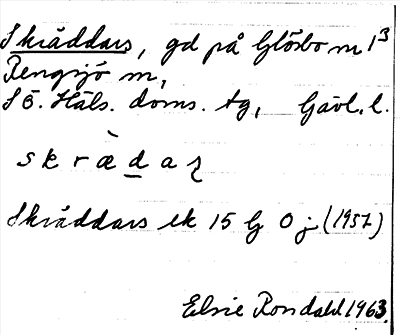 Skräddars, gd på Glösbo m 1³
Rengsjö m,
S Ö. Häls. doms. tg, Gävl. l.
s k r æ̀ d̲ a ʐ
Skräddars ek 15 lg 0 j (1937)
Elsie Rondahl 1963.